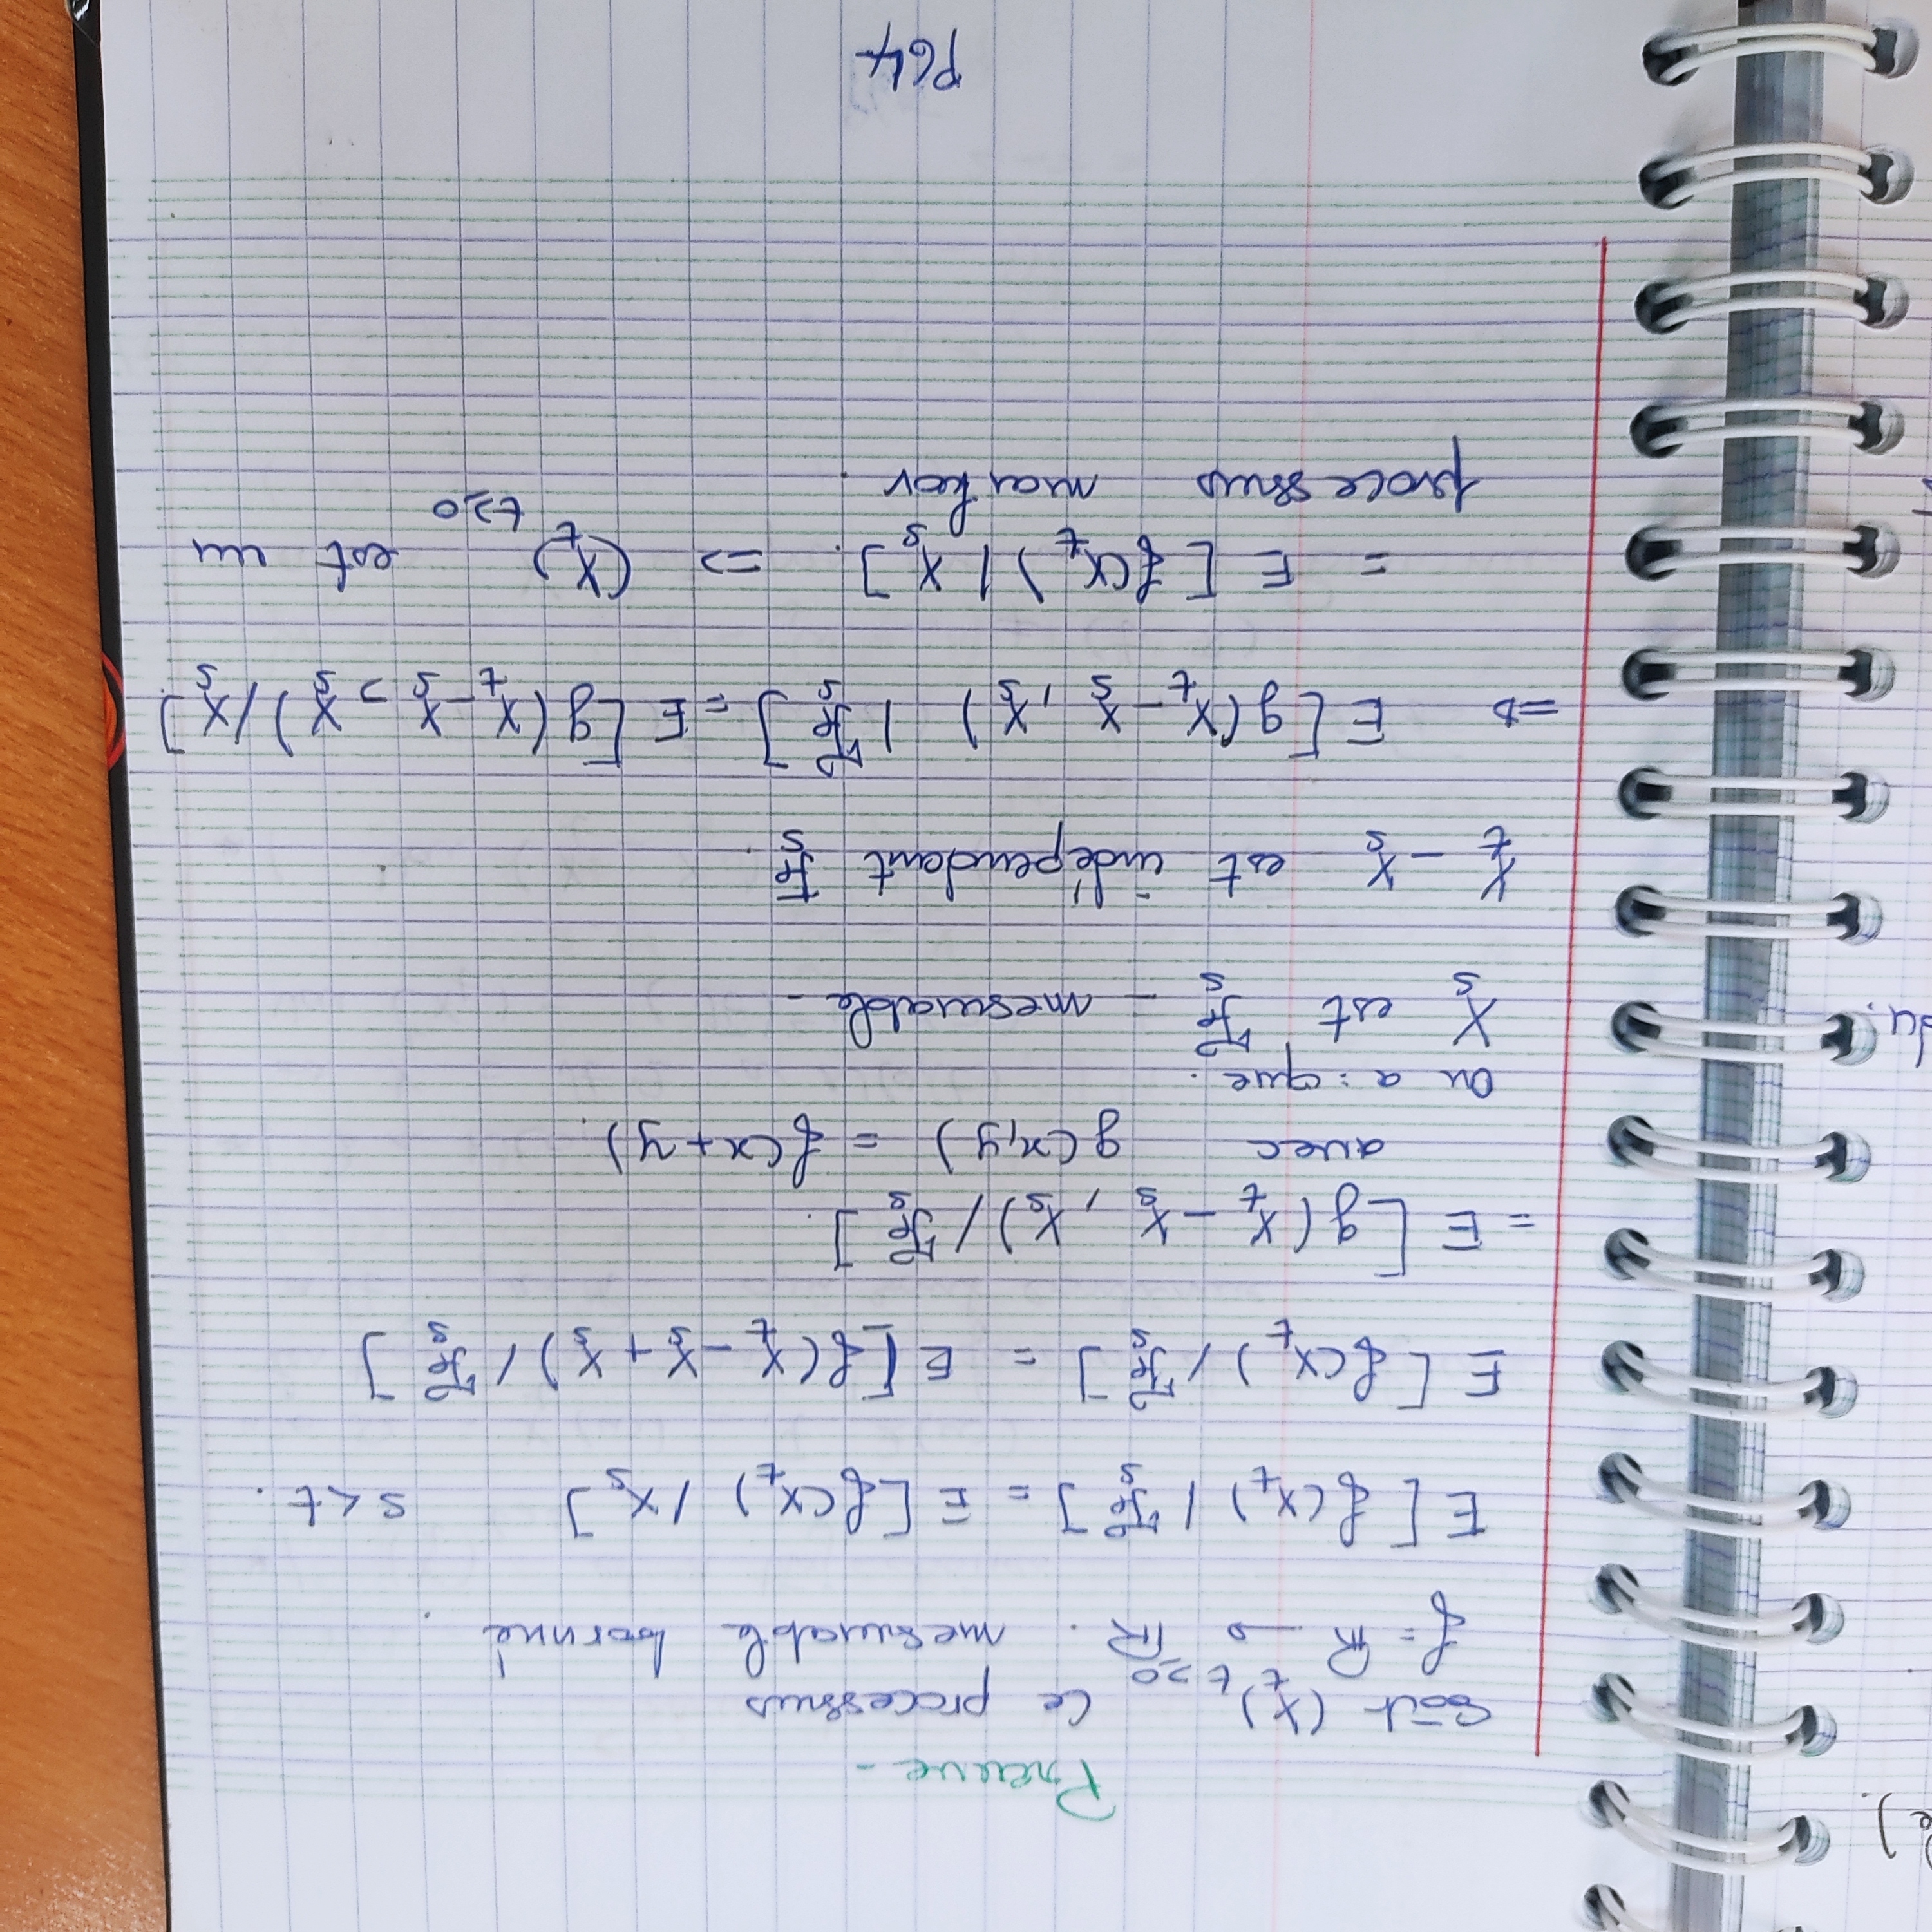 e).
du.
Preuve -
Soit (X_t)_{t≥0} Ce processus
f = ℝ → ℝ. mesurable borné.
E[f(X_t) / ℱ_s] = E[f(X_t) / X_s] s<t.
E[f(X_t) / ℱ_s] = E[f(X_t - X_s + X_s) / ℱ_s]
= E[g(X_t - X_s, X_s) / ℱ_s].
avec g(x,y) = f(x+y).
On a : que.
X_s est ℱ_s - mesurable -
X_t - X_s est indépendant ℱ_s.
=> E[g(X_t - X_s, X_s) | ℱ_s] = E[g(X_t - X_s, X_s) / X_s]
= E[f(X_t) | X_s]. => (X_t)_{t≥0} est un
processus markov.
P64